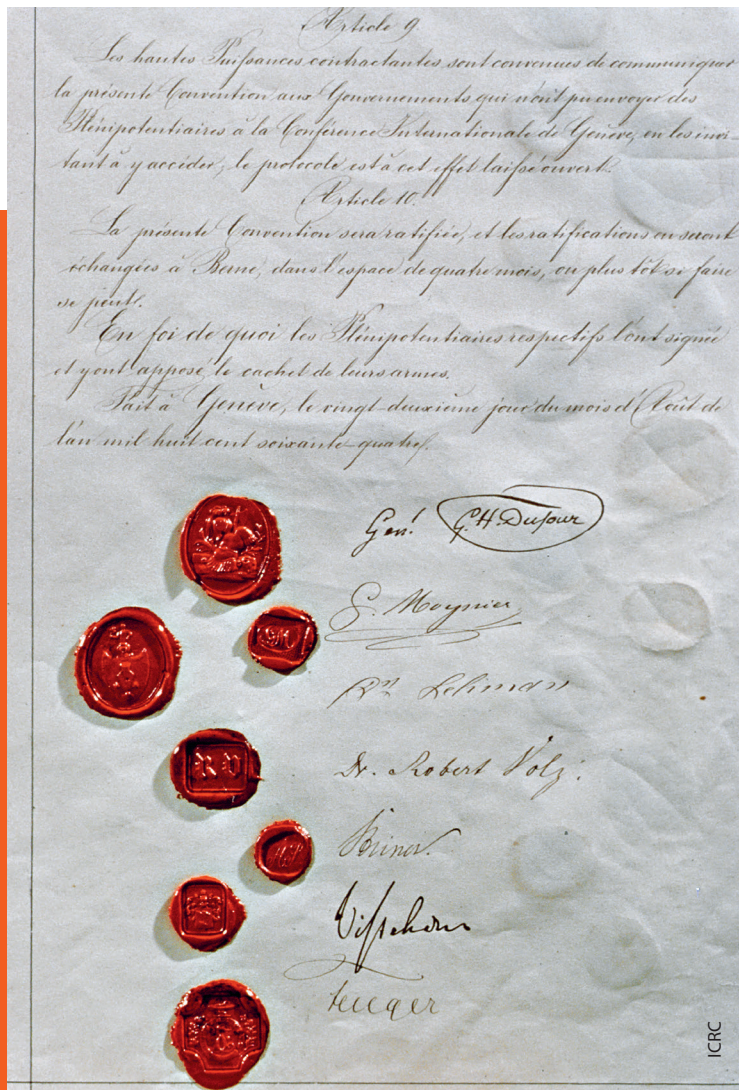 Article 9.
Les hautes Puissances contractantes sont convenues de communiquer
la présente Convention aux Gouvernements qui n'ont pu envoyer des
Plénipotentiaires à la Conférence Internationale de Genève, en les invi-
tant à y accéder; le protocole est à cet effet laissé ouvert.
Article 10.
La présente Convention sera ratifiée, et les ratifications en seront
échangées à Berne, dans l'espace de quatre mois, ou plus tôt si faire
se peut.
En foi de quoi les Plénipotentiaires respectifs l'ont signée
et y ont apposé le cachet de leurs armes.
Fait à Genève, le vingt-deuxième jour du mois d'Août de
l'an mil huit cent soixante-quatre.
Gén! G. H. Dufour
G. Moynier
Dr. Robert Volz.
Steiner.
Visschers
RV
ICRC